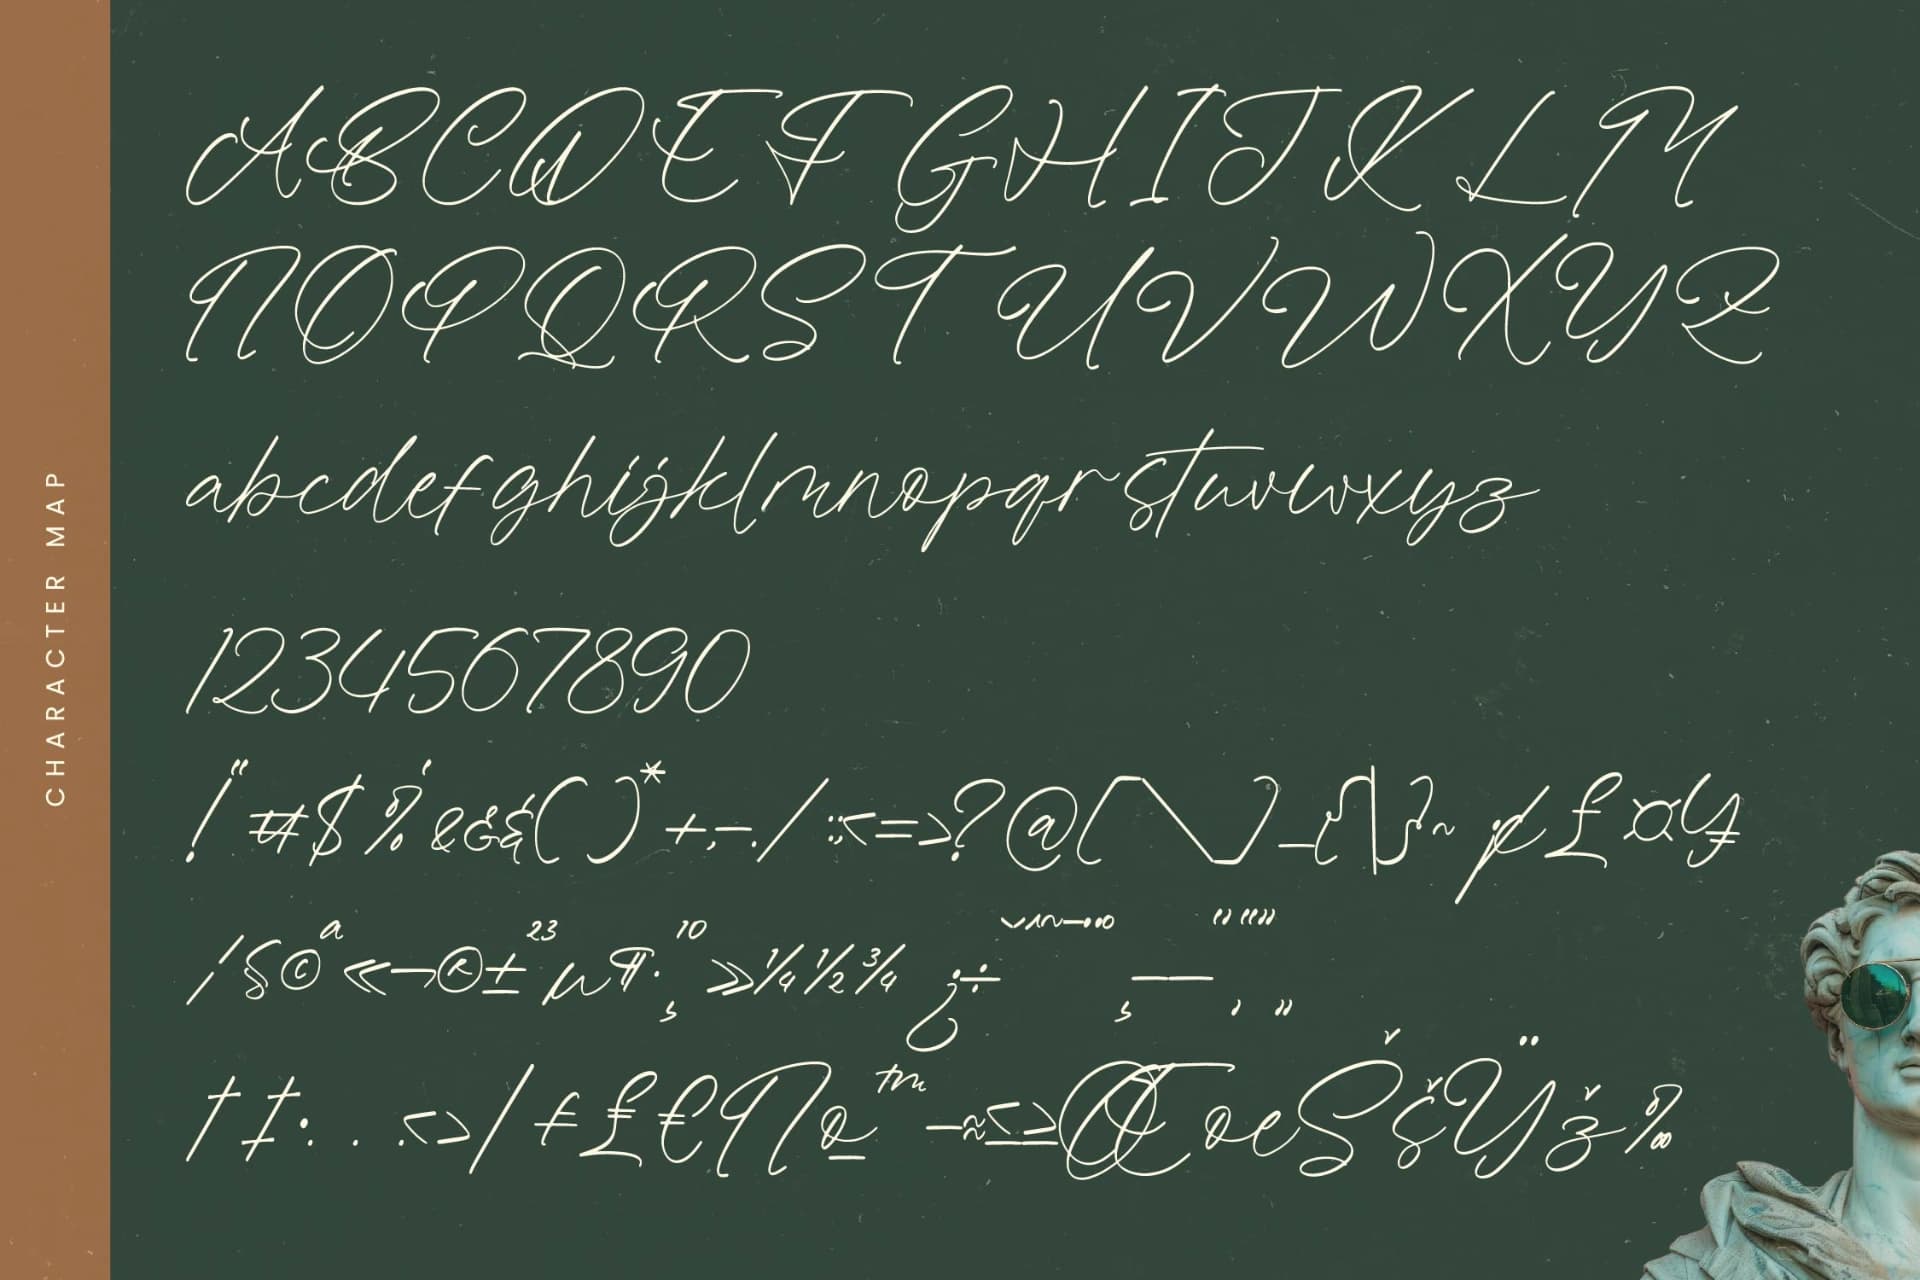 CHARACTER MAP
ABCDEFGHIJKLM
NOPQRSTUVWXYZ
abcdefghijklmnopqrstuvwxyz
1234567890
!"#$%'&()*+,-./:;<=>?@[\]_{|}~¢£¤¥
¦§©ª«¬®±²³µ¶·¸¹º»¼½¾¿÷
†‡•…‹›⁄™−≈≤≥ŒœŠšŸž‰